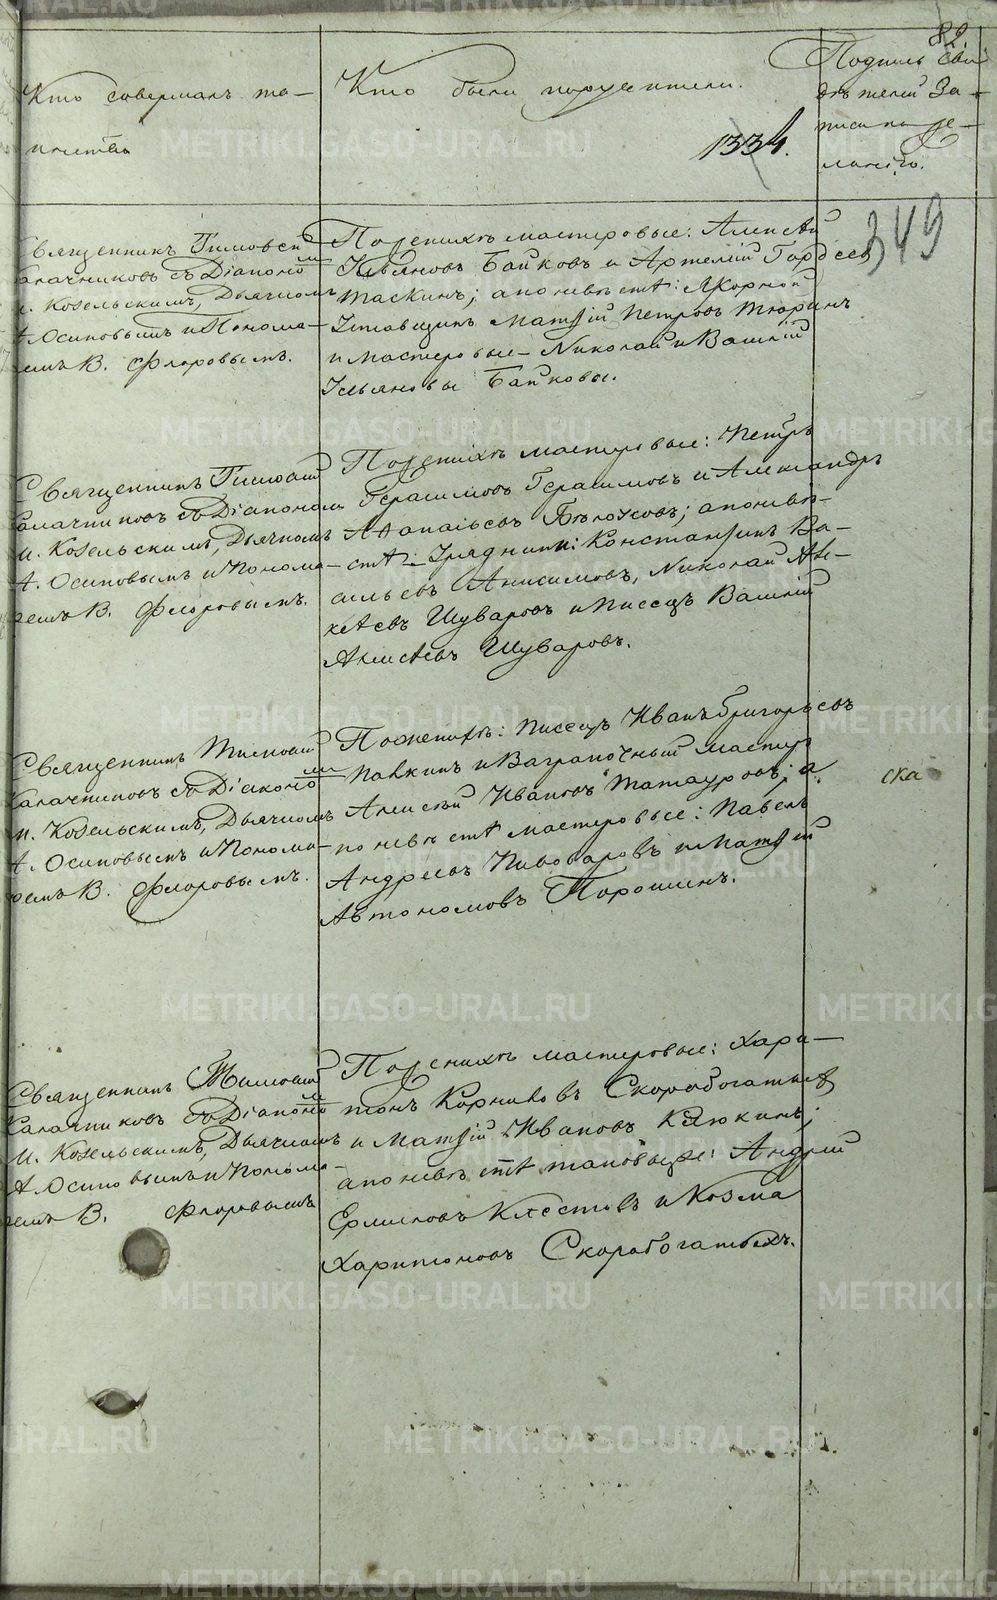 82
Кто совершалъ та-
инства
Кто были поручители.
1334.
Подпись сви
дѣтелей за-
писи по же-
ланію.
349
Священникъ Тимоѳей
Калачниковъ съ Діакономъ
И. Козельскимъ, Дьячкомъ
А. Осиповымъ и Понома-
ремъ В. Флоровымъ.
По женихѣ мастеровые: Алексѣй
Ульяновъ Байковъ и Артемій Гордѣевъ
Таскинъ; а по невѣстѣ: Якорной
Уставщикъ Матѳій Петровъ Тюринъ
и мастеровые Николай и Василій
Ульяновы Байковы.
Священникъ Тимоѳей
Калачниковъ съ Діакономъ
И. Козельскимъ, Дьячкомъ
А. Осиповымъ и Понома-
ремъ В. Флоровымъ.
По женихѣ мастеровые: Петръ
Герасимовъ Герасимовъ и Александръ
Аѳанасьевъ Бѣлоусовъ; а по невѣ-
стѣ Урядники: Константинъ Ва-
сильевъ Анисимовъ, Николай Але-
ксѣевъ Шуваровъ и Писецъ Василій
Алексѣевъ Шуваровъ.
Священникъ Тимоѳей
Калачниковъ съ Діакономъ
И. Козельскимъ, Дьячкомъ
А. Осиповымъ и Понома-
ремъ В. Флоровымъ.
По женихѣ: Писецъ Иванъ Григорьевъ
Павкинъ и Ваграночный мастеръ
Алексѣй Ивановъ Татауровъ; а
по невѣстѣ мастеровые: Павелъ
Андреевъ Пивоваровъ и Матѳій
Автономовъ Порошинъ.
ска
Священникъ Тимоѳей
Калачниковъ съ Діакономъ
И. Козельскимъ, Дьячкомъ
А. Осиповымъ и Понома-
ремъ В. Флоровымъ
По женихѣ мастеровые: Хари-
тонъ Корниловъ Скоробогатыхъ
и Матѳій Ивановъ Клюкинъ;
а по невѣстѣ таковые же: Андрей
Ермиловъ Клестовъ и Козма
Харитоновъ Скоробогатыхъ.
METRIKI.GASO-URAL.RU